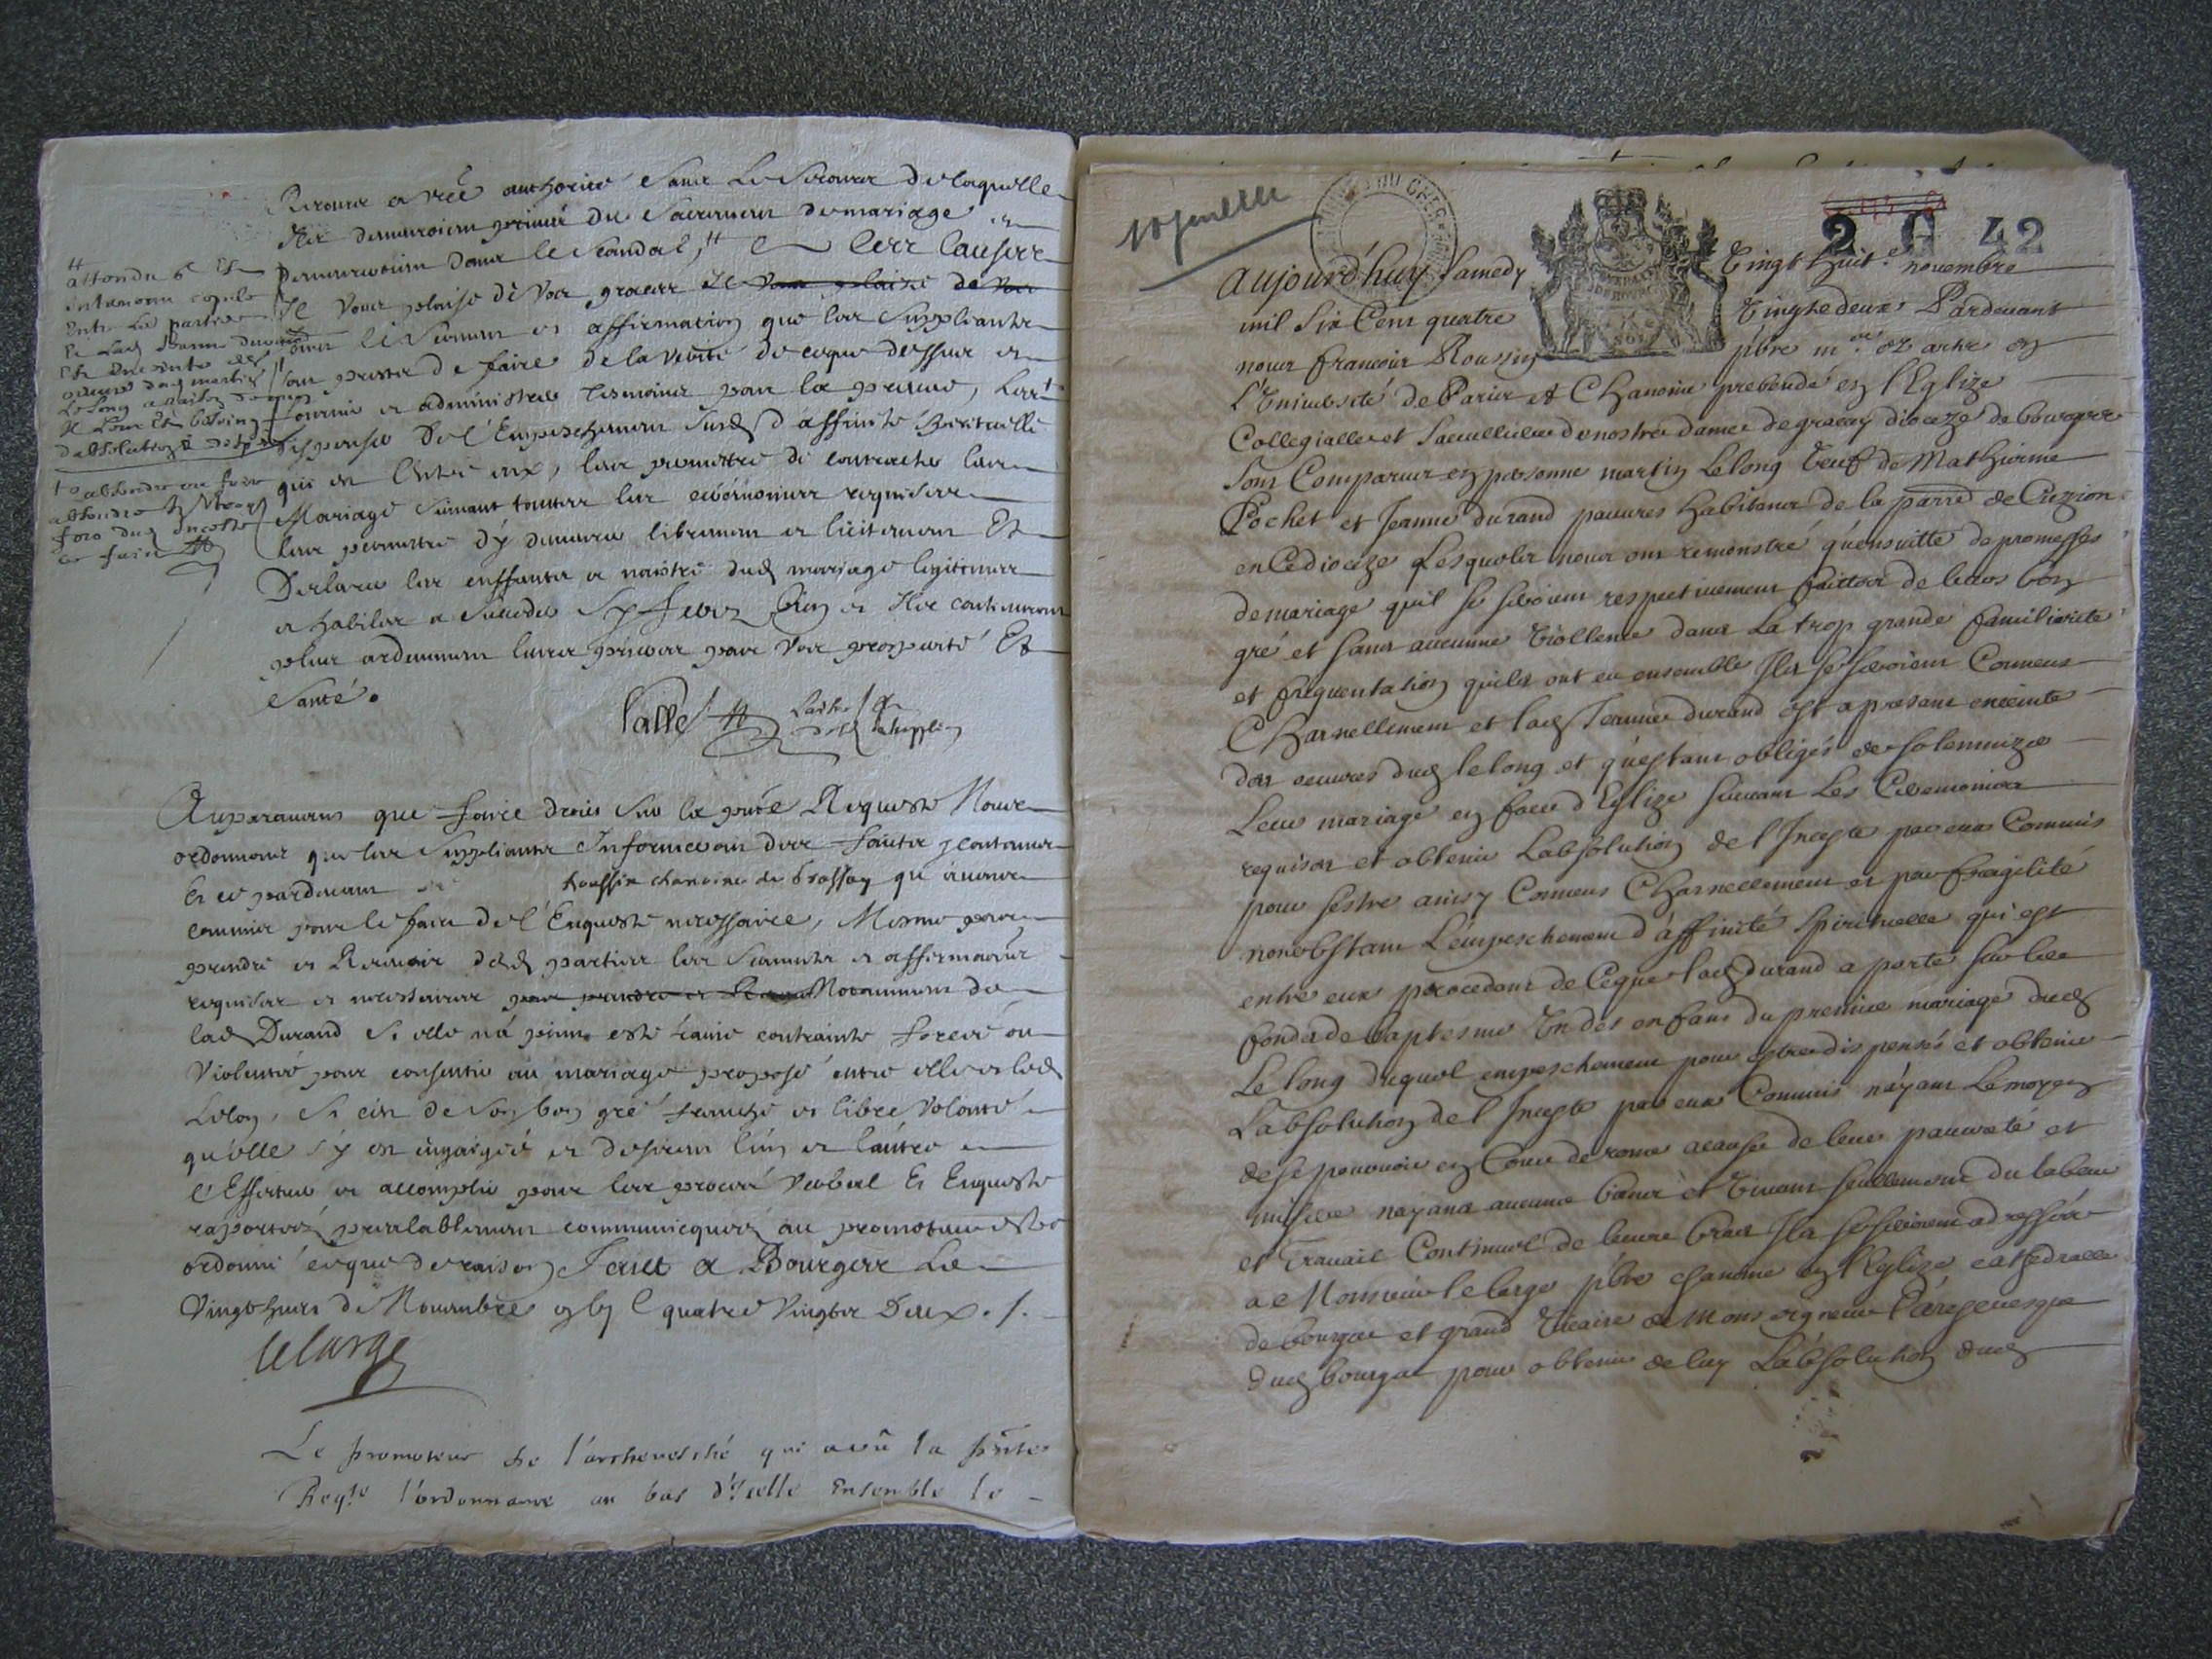 Recourir a vre authorité sans le secours de laquelle
Ils demeuroient privés du sacrement de mariage et
demeureroient dans le scandal, # Ce les
Il vous plaise de vos graces Il vous plaise de vos
le serment et affirmation que les suppliants
sont prests de faire de la verité de ce que dessus et
fournir et administrer tesmoins pour la preuve, les
dispenser de l'Empeschement susd d'affinité spirituelle
qui est entre eux, leur permettre de contracter leur
Mariage suivant touttes les ceremonies requises
leur permettre d'y demeurer librement et licitement Et
Declarer les enffants a naistre dud mariage legitimes
et habiles a succeder Sy ferez bien et Ils continueront
plus ardemment leurs prieres pour vos prosperité Et
Santé.
#
attendu
copule
entre les parties
Et lad Jeanne durand
est enceinte des
oeuvres dud martin
Le long
d'absolution
foro dud Inceste
Auparavant que faire droit sur la pnte Requeste Nous
ordonnons que les suppliants Informeront des faits y contenus
Et ce pardevant roussin chanoine de qu'avons
commis pour le faire de l'Enqueste necessaire, Mesme pour
prendre et Recevoir desd parties les serments et affirmations
requises et necessaires pour prendre et Nottamment de
lad Durand si elle n'a point esté contrainte forcée ou
Violentée pour consentir au mariage proposé entre elle et led
Lelong, si c'est de son bon gré franche et libre volonté
qu'elle s'y est engagée et desirent l'un et l'autre
l'Effectuer et accomplir pour les procés verbal Et Enqueste
raportez prealablement communicquez au promoteur estre
ordonné ce que de raison Faict a Bourges Le
Vingt huit de Novembre quatre Vingts Deux ./.
Lelarge
Le promoteur de l'archevesché qui a vû la pnte
Reqte l'ordonnance au bas d'icelle Ensemble le
2 G 42
aujourd'huy samedy Vingt huit.e novembre
mil six Cent quatre Vingts deux Pardevant
nous francois Roussin pbre m.e ez arts en
l'Université de Paris et Chanoine prebendé en l'Eglize
Collegialle et Seculliere de nostre dame de graçay dioceze de bourges
Sont Comparus en personne martin Lelong veuf de Mathurine
Pochet et Jeanne durand pauvres habitans de la parre de
en Ce dioceze Lesquels nous ont remonstré qu'ensuitte de promesses
de mariage qu'il se seroient respectivement faittes de leurs bon
gré et sans aucunne viollence dans La trop grande familiarité
et frequentation quils ont eu ensemble Ils se seroient Connus
Charnellement et lad Jeanne durand est a present enceinte
des oeuvres dud lelong et qu'estans obligés de solemnizer
Leur mariage en face d'Eglize suivant Les Ceremonies
requises et obtenir L'absolution de l'Inceste par eux Commis
pour s'estre ainsy Connus Charnellement et par fragilité
nonobstant L'empeschement d'affinité spirituelle qui est
entre eux procedant de Ce que lad durand a porté sur les
fonds de baptesme Un des enfans du premier mariage dud
Le long duquel empeschement pour estre dispensés et obtenir
L'absolution de l'Inceste par eux Commis n'ayant Le moyen
de se pourvoir en Cour de rome a cause de leur pauvreté et
misere n'ayans aucuns biens et vivans seullement du labeur
et travail Continuel de leurs bras Ils se seroient adressés
a Monsieur le large pbre chanoine en l'Eglize cathedralle
de bourges et grand vicaire de Monseigneur L'archevesque
dud bourges pour obtenir de luy L'absolution dud